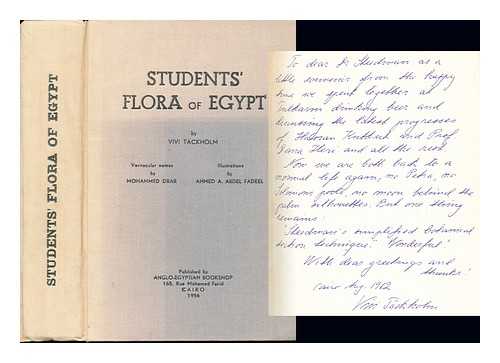 STUDENTS' FLORA OF EGYPT
STUDENTS'
FLORA OF EGYPT
by
VIVI TACKHOLM
Vernacular names
by
MOHAMMED DRAR
Illustrations
by
AHMED A. ABDEL FADEEL
Published by
ANGLO-EGYPTIAN BOOKSHOP
165, Rue Mohamed Farid
CAIRO
1956
To dear Dr as a
little souvenir from the happy
time we spent together at
drinking beer and
the latest progresses
of Hassan and Prof.
and all the rest.
Now we are both back to a
normal life again, no Petra, no
Solomons pools, no moon behind the
palm silhouettes. But one thing
remains:
simplified botanical
technique." Wonderful!
With dear greetings and
thanks!
Cairo Aug. 1962
Vivi Täckholm